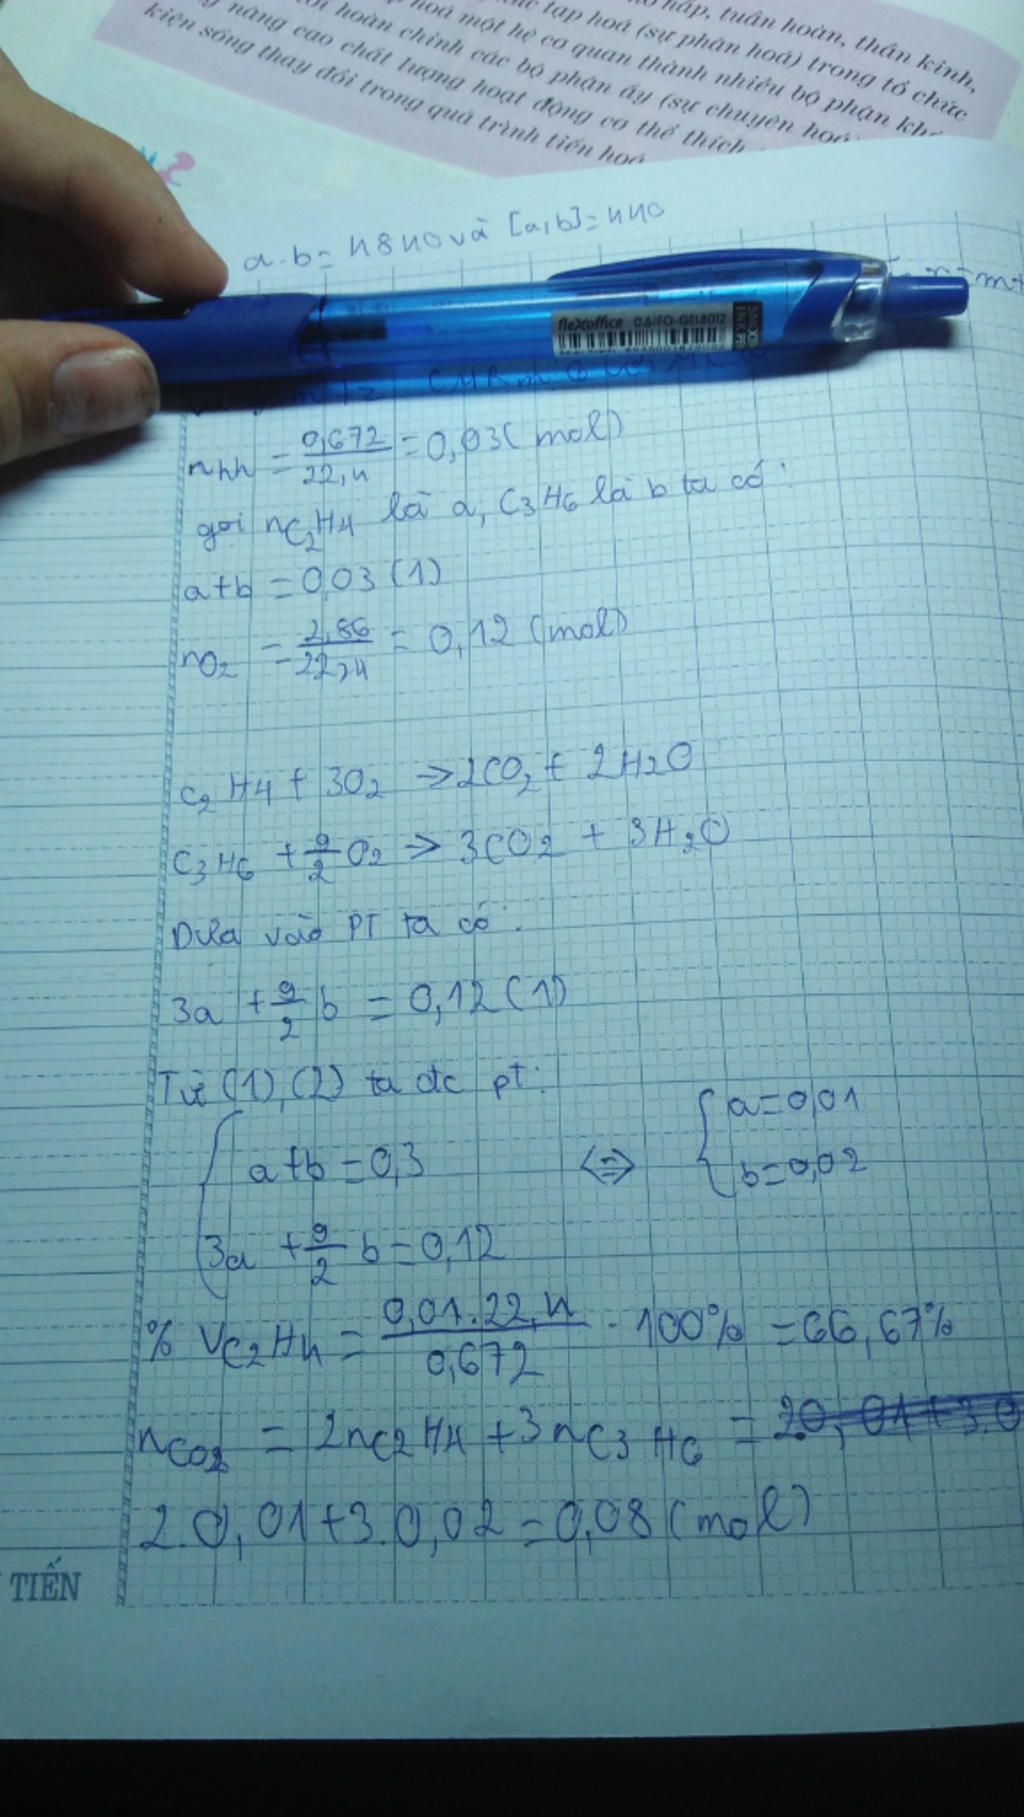 hấp, tuần hoàn, thần kinh,
tạp hoá (sự phân hoá) trong tổ chức
hoá một hệ cơ quan thành nhiều bộ phận
hoàn chỉnh các bộ phận ấy (sự chuyên hoá
năng cao chất lượng hoạt động cơ thể thích
kiện sống thay đổi trong quá trình tiến hoá
a.b= 4840 và [a,b]=440
flexoffice 0.6 FO-GELB012
nhh = 0,672/22,4 = 0,03( mol)
gọi nC2H4 là a, C3H6 là b ta có:
a+b = 0,03 (1)
nO2 = 2,86/22,4 = 0,12 (mol)
C2H4 + 3O2 → 2CO2 + 2H2O
C3H6 + 9/2 O2 → 3CO2 + 3H2O
Dựa vào PT ta có:
3a + 9/2 b = 0,12 (1)
Từ (1), (2) ta đc pt:
{ a+b = 0,3 <=> { a=0,01
3a + 9/2 b = 0,12 b=0,02
% VC2H4 = 0,01.22,4/0,672 . 100% = 66,67%
nCO2 = 2nC2H4 + 3nC3H6 =
2.0,01+3.0,02 = 0,08 (mol)
TIẾN